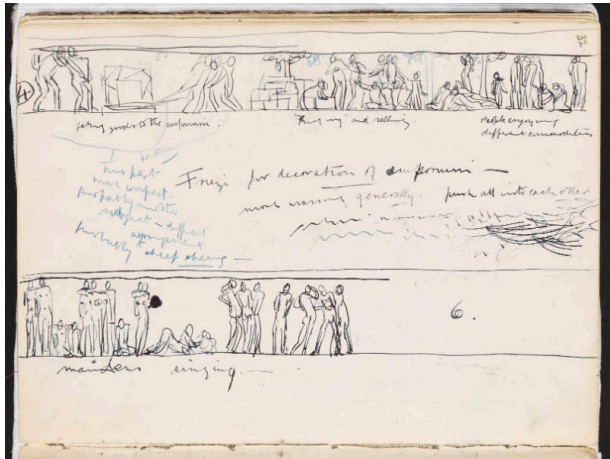 32
4
taking goods to the emporium.
Buying and selling
People enjoying
different commodities
I
this part
more compact
Probably another
subject - different
arrangement
Probably sheep shearing —
Frieze for decoration of emporium —
more massing generally. push all into each other
6.
maidens singing. —